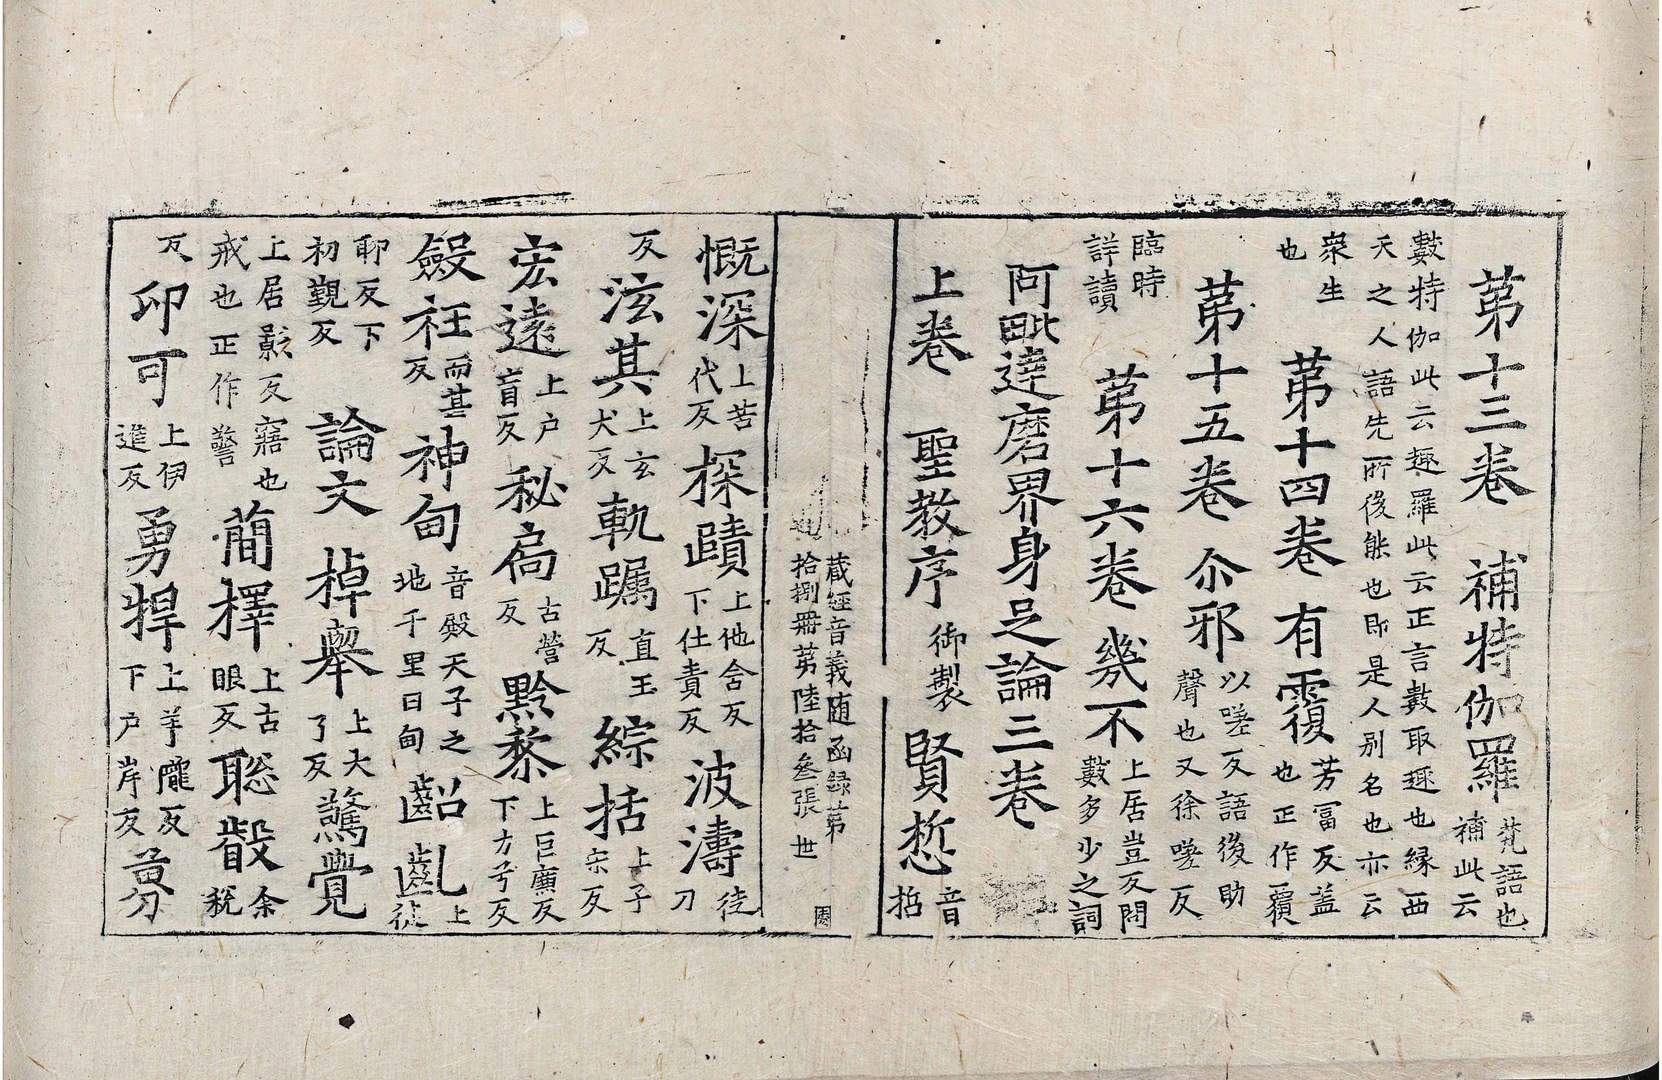 第十三卷 補特伽羅 梵語也補此云
數特伽此云趣羅此云正言數取趣也緣西
天之人語先所後能也即是人別名也亦云
衆生也 第十四卷 有覆 芳富反蓋也正作覆
第十五卷 尒邪 以嗟反語後助聲也又徐嗟反
臨時詳讀 第十六卷 幾不 上居豈反問數多少之詞
阿毗達磨界身足論三卷
上卷 聖教序 御製 賢悊 音哲
藏經音義随函録第
拾捌冊苐陸拾叄張 世
慨深 上苦代反 探賾 上他含反下仕責反 波濤 徒刀
反 泫其 上玄犬反 軌躅 直玉反 綜括 上子宋反
宏遠 上户盲反 秘扃 古營反 黔黎 上巨廉反下方兮反
㱃衽 而甚反 神甸 音殿天子之地千里曰甸 齠齓 上徒
聊反下初覲反 論文 掉舉 上大了反 驚覺
上居影反寤也戒也正作警 蕳擇 上古眼反 聡叡 余稅
反 印可 上伊進反 勇猂 上羊隴反下户岸反 募